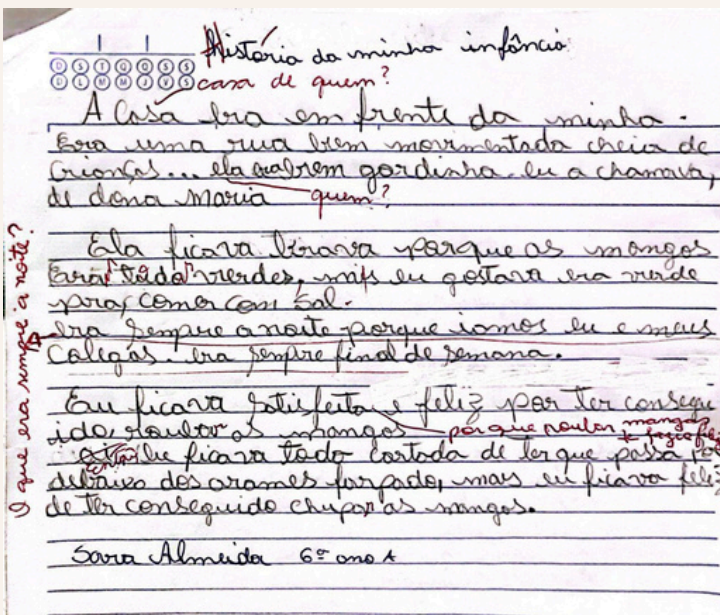 História da minha infância
D S T Q Q S S
D L M M J V S
casa de quem?
A Casa era em frente da minha.
Era uma rua bem movimentada cheia de
Crianças... ela era bem gordinha eu a chamava,
de dona Maria quem?
Ela ficava brava porque as mangas
Erã toda verdes, mais eu gostava era verde
pra comer com sal.
era sempre a noite porque iamos eu e meus
Colegas era sempre final de semana.
O que era sempre a noite?
Eu ficava satisfeita e feliz por ter consegui
ido roubar as mangas por que roubar manga
te fazia feliz
eu ficava toda cortada de ter que passa por
debaixo dos arames farpado, mais eu ficava feliz
de ter conseguido chupar as mangas.
Sara Almeida 6º ano A